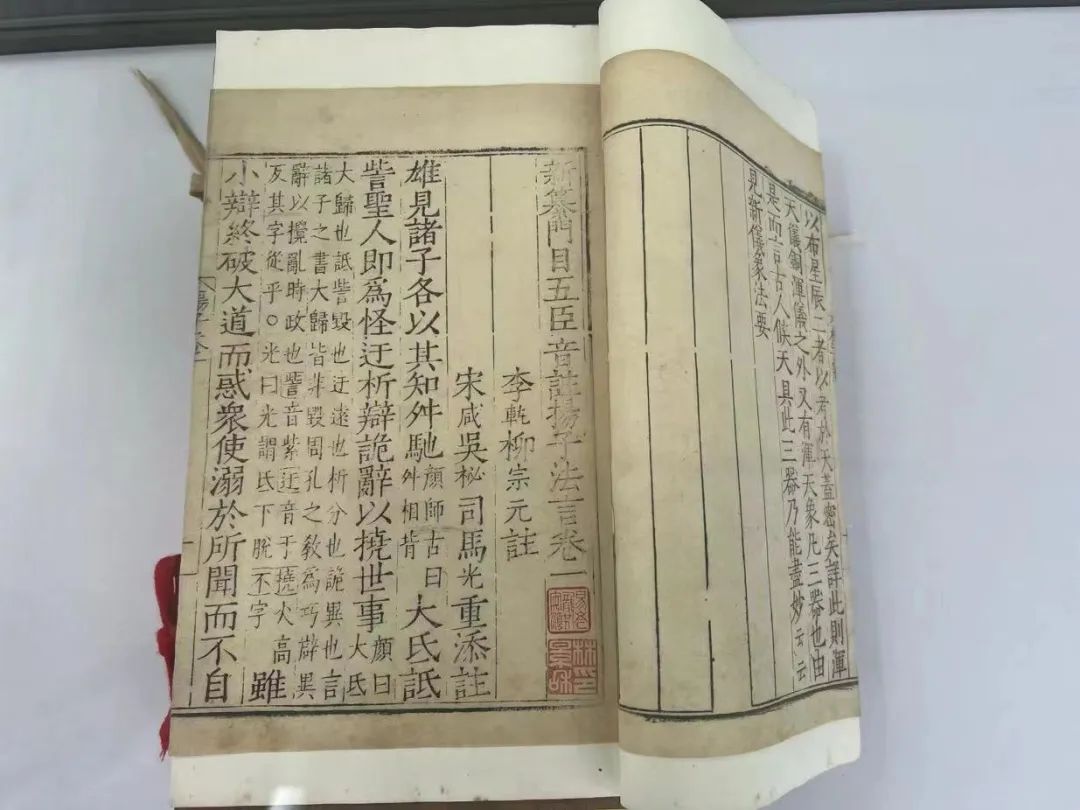 以布星辰二者以考於天蓋密矣詳此則渾
天儀銅渾儀之外又有渾天象凡三器也由
是而言古人候天具此三器乃能盡妙云云
見新儀象法要
新纂門目五臣音註揚子法言卷一
李軓柳宗元註
宋咸吳祕司馬光重添註
雄見諸子各以其知舛馳顏師古曰舛相背大氐詆
訾聖人即爲怪迂析辯詭辭以撓世事顏曰大氐
大歸也詆訾毀也迂遠也析分也詭異也言
諸子之書大歸皆非毀周孔之教爲巧辟異
辭以攪亂時政也訾音紫迂音于撓火高
反其字從手○光曰光謂氐下脫不字雖
小辯終破大道而惑衆使溺於所聞而不自